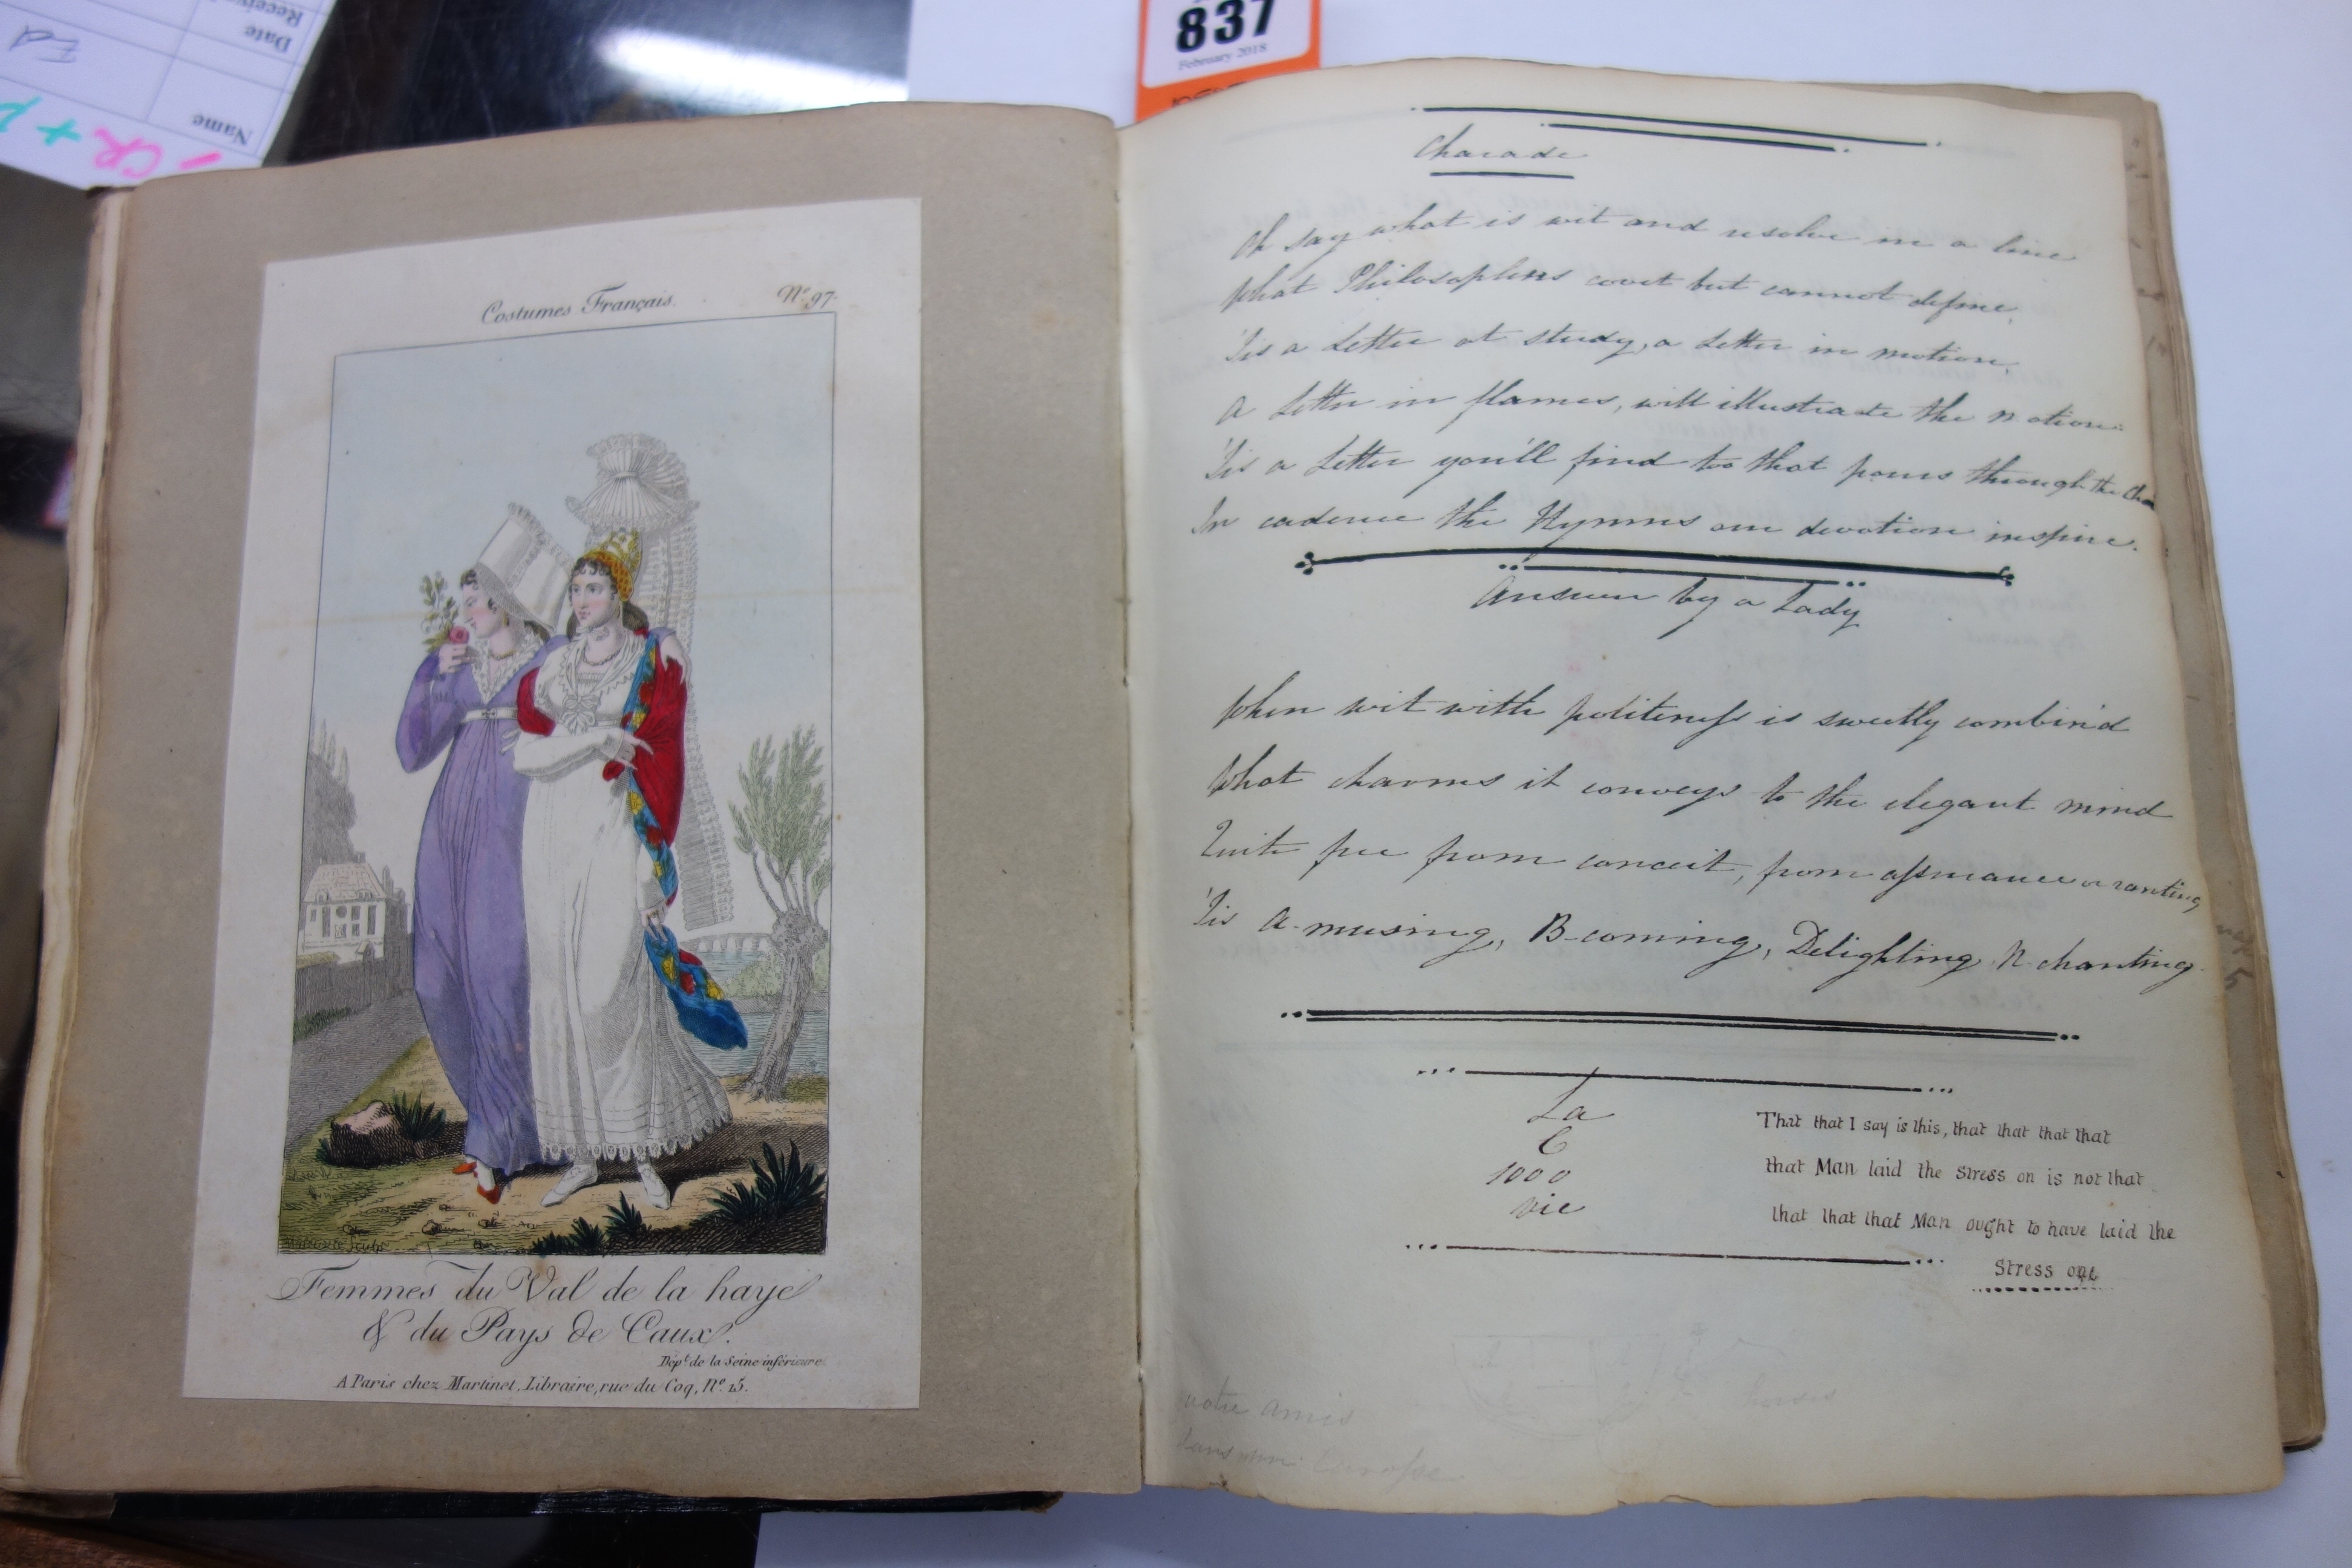 837
February 2018
Name
Date
Ed
CR +
Costumes Français. Nº 97.
Femmes du Val de la haye
& du Pays de Caux.
Dépt de la Seine inférieure
A Paris chez Martinet, Libraire, rue du Coq, Nº 15.
Charade
Oh say what is wit and resolve in a line
What Philosophers covet but cannot define,
'Tis a Letter at study, a Letter in motion,
A Letter in flames, will illustrate the n otion:
'Tis a Letter you'll find too that pours through the
In cadence the Hymns our devotion inspire.
Answer by a Lady
When wit with politeness is sweetly combin'd
What charms it conveys to the elegant mind
Quite free from conceit, from assurance or ranting
'Tis A-musing, B-coming, Delighting N-chanting.
La
C
1000
vie
That that I say is this, that that that that
that Man laid the stress on is not that
that that that Man ought to have laid the
Stress on
votre amis